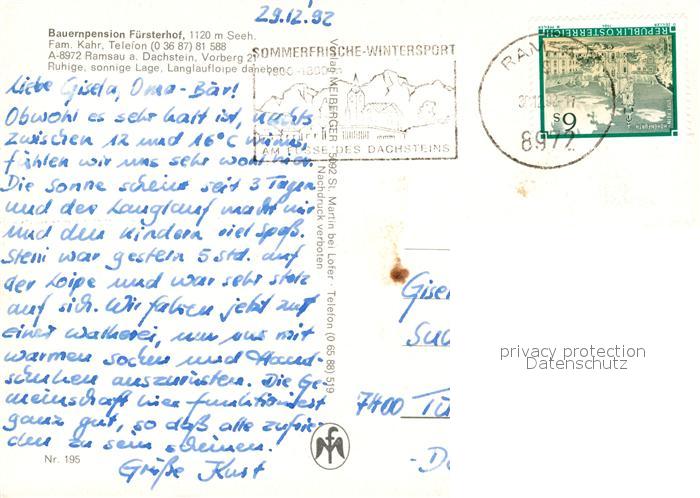 29.12.'92
Bauernpension Fürsterhof, 1120 m Seeh.
Fam. Kahr, Telefon (0 36 87) 81 588
A-8972 Ramsau a. Dachstein, Vorberg 21
Ruhige, sonnige Lage, Langlaufloipe daneben
SOMMERFRISCHE-WINTERSPORT
AM FUSSE DES DACHSTEINS
8972
REPUBLIK ÖSTERREICH
6 S
Liebe Gisela, Oma-Bär!
Obwohl es sehr kalt ist, nachts
zwischen 12 und 16°C minus,
fühlen wir uns sehr wohl hier.
Die Sonne scheint seit 3 Tagen
und der Langlauf macht mir
und den Kindern viel Spaß.
Steni war gestern 5 Std. auf
der Loipe und war sehr stolz
auf sich. Wir fahren jetzt zur
einer Walkerei, um uns mit
warmen Socken und Hand-
schuhen auszurüsten. Die Ge-
meinschaft hier funktioniert
ganz gut, so daß alle zufrie-
den zu sein scheinen.
Grüße Kurt
Nr. 195
5092 St. Martin bei Lofer · Telefon (0 65 88) 519
Nachdruck verboten
7400 Tü
privacy protection
Datenschutz